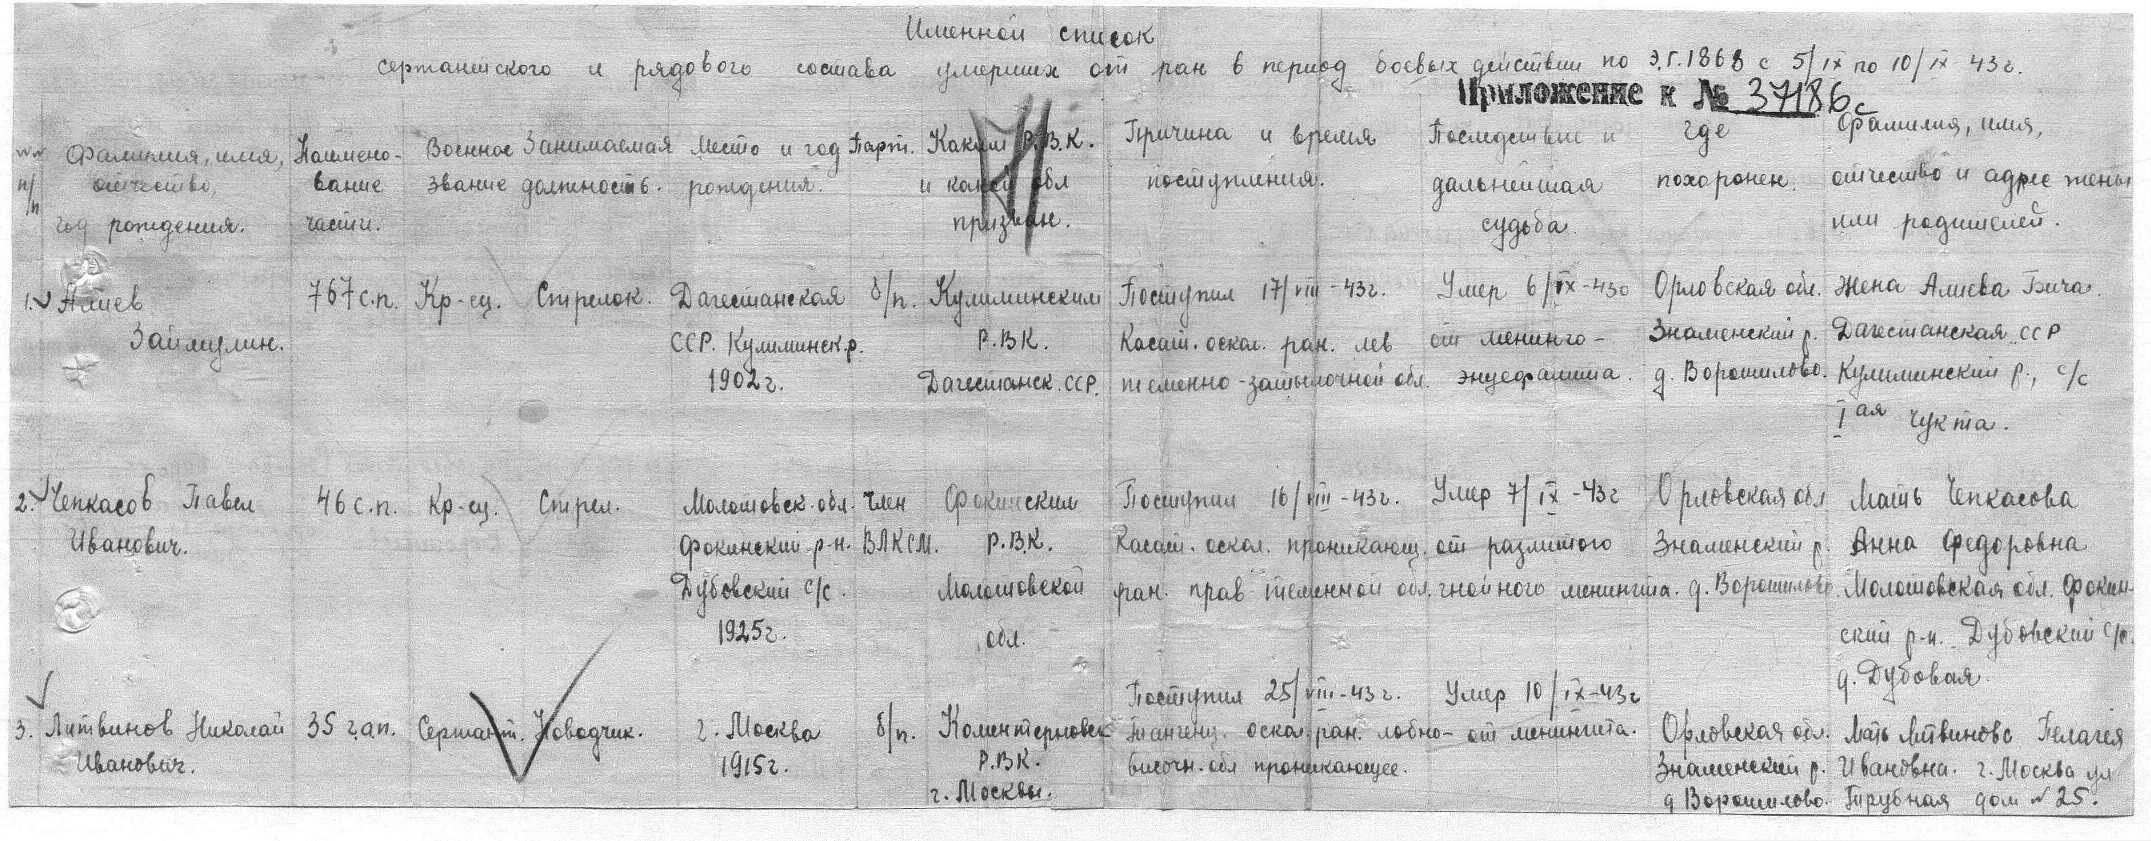 Именной список
сержантского и рядового состава умерших от ран в период боевых действий по Э.Г.1868 с 5/IX по 10/IX 43г.
Приложение к № 37186с
№№ п/п
Фамилия, имя,
отчество,
год рождения.
Наимено-
вание
части.
Военное
звание
Занимаемая
должность.
Место и год
рождения.
Парт.
Каким Р.В.К.
и какой обл
призван.
Причина и время
поступления.
Последствие и
дальнейшая
судьба.
где
похоронен.
Фамилия, имя,
отчество и адрес жены
или родителей.
1. Алиев
Займулин.
767 с.п.
Кр-ец.
Стрелок.
Дагестанская
ССР. Кулиминск.р.
1902г.
б/п.
Кулиминским
Р.В.К.
Дагестанск.ССР.
Поступил 17/VIII-43г.
Касат. оскол. ран. лев
теменно-затылочной обл.
Умер 6/IX-43г
от менинго-
энцефалита.
Орловская обл.
Знаменский р.
д. Ворошилово.
Жена Алиева Бича.
Дагестанская ССР
Кулиминский р., с/с
Iая Чукта.
2. Чепкасов Павел
Иванович.
46 с.п.
Кр-ец.
Стрел.
Молотовск.обл.
Фокинский р-н.
Дубовский с/с.
1925г.
член
ВЛКСМ.
Фокинским
Р.В.К.
Молотовской
обл.
Поступил 16/VIII-43г.
Касат. оскол. проникающ.
ран. прав теменной обл.
Умер 7/IX-43г
от разлитого
гнойного менингита.
Орловская обл
Знаменский р.
д. Ворошилово.
Мать Чепкасова
Анна Федоровна
Молотовская обл. Фокин-
ский р-н. Дубовский с/с.
д. Дубовая.
3. Литвинов Николай
Иванович.
35 г.ап.
Сержант.
Наводчик.
г. Москва
1915г.
б/п.
Коминтерновск
Р.В.К.
г. Москвы.
Поступил 25/VIII-43г.
Тангенц. оскол. ран. лобно-
височн. обл проникающее.
Умер 10/IX-43г
от менингита.
Орловская обл.
Знаменский р.
д Ворошилово.
Мать Литвинова Пелагея
Ивановна. г. Москва ул
Трубная дом №25.